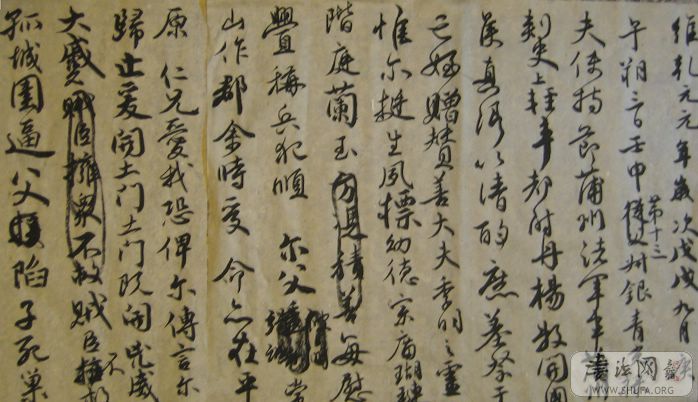 維乾元元年歲次戊戌九月
午朔三日壬申第十三銀青
夫使持節蒲州諸軍事
刺史上輕車都尉丹楊縣開國
侯真卿以清酌庶羞祭于
亡姪贈贊善大夫季明之靈
惟爾挺生夙標幼德宗廟瑚璉
階庭蘭玉方憑積善每慰
釁稱兵犯順爾父常
山作郡余時受命亦在平
原仁兄愛我恐俾爾傳言爾
歸止爰開土門土門既開凶威
大蹙賊臣擁衆不救賊臣擁不
孤城圍逼父陷子死巢
書法网
WWW.SHUFA.ORG